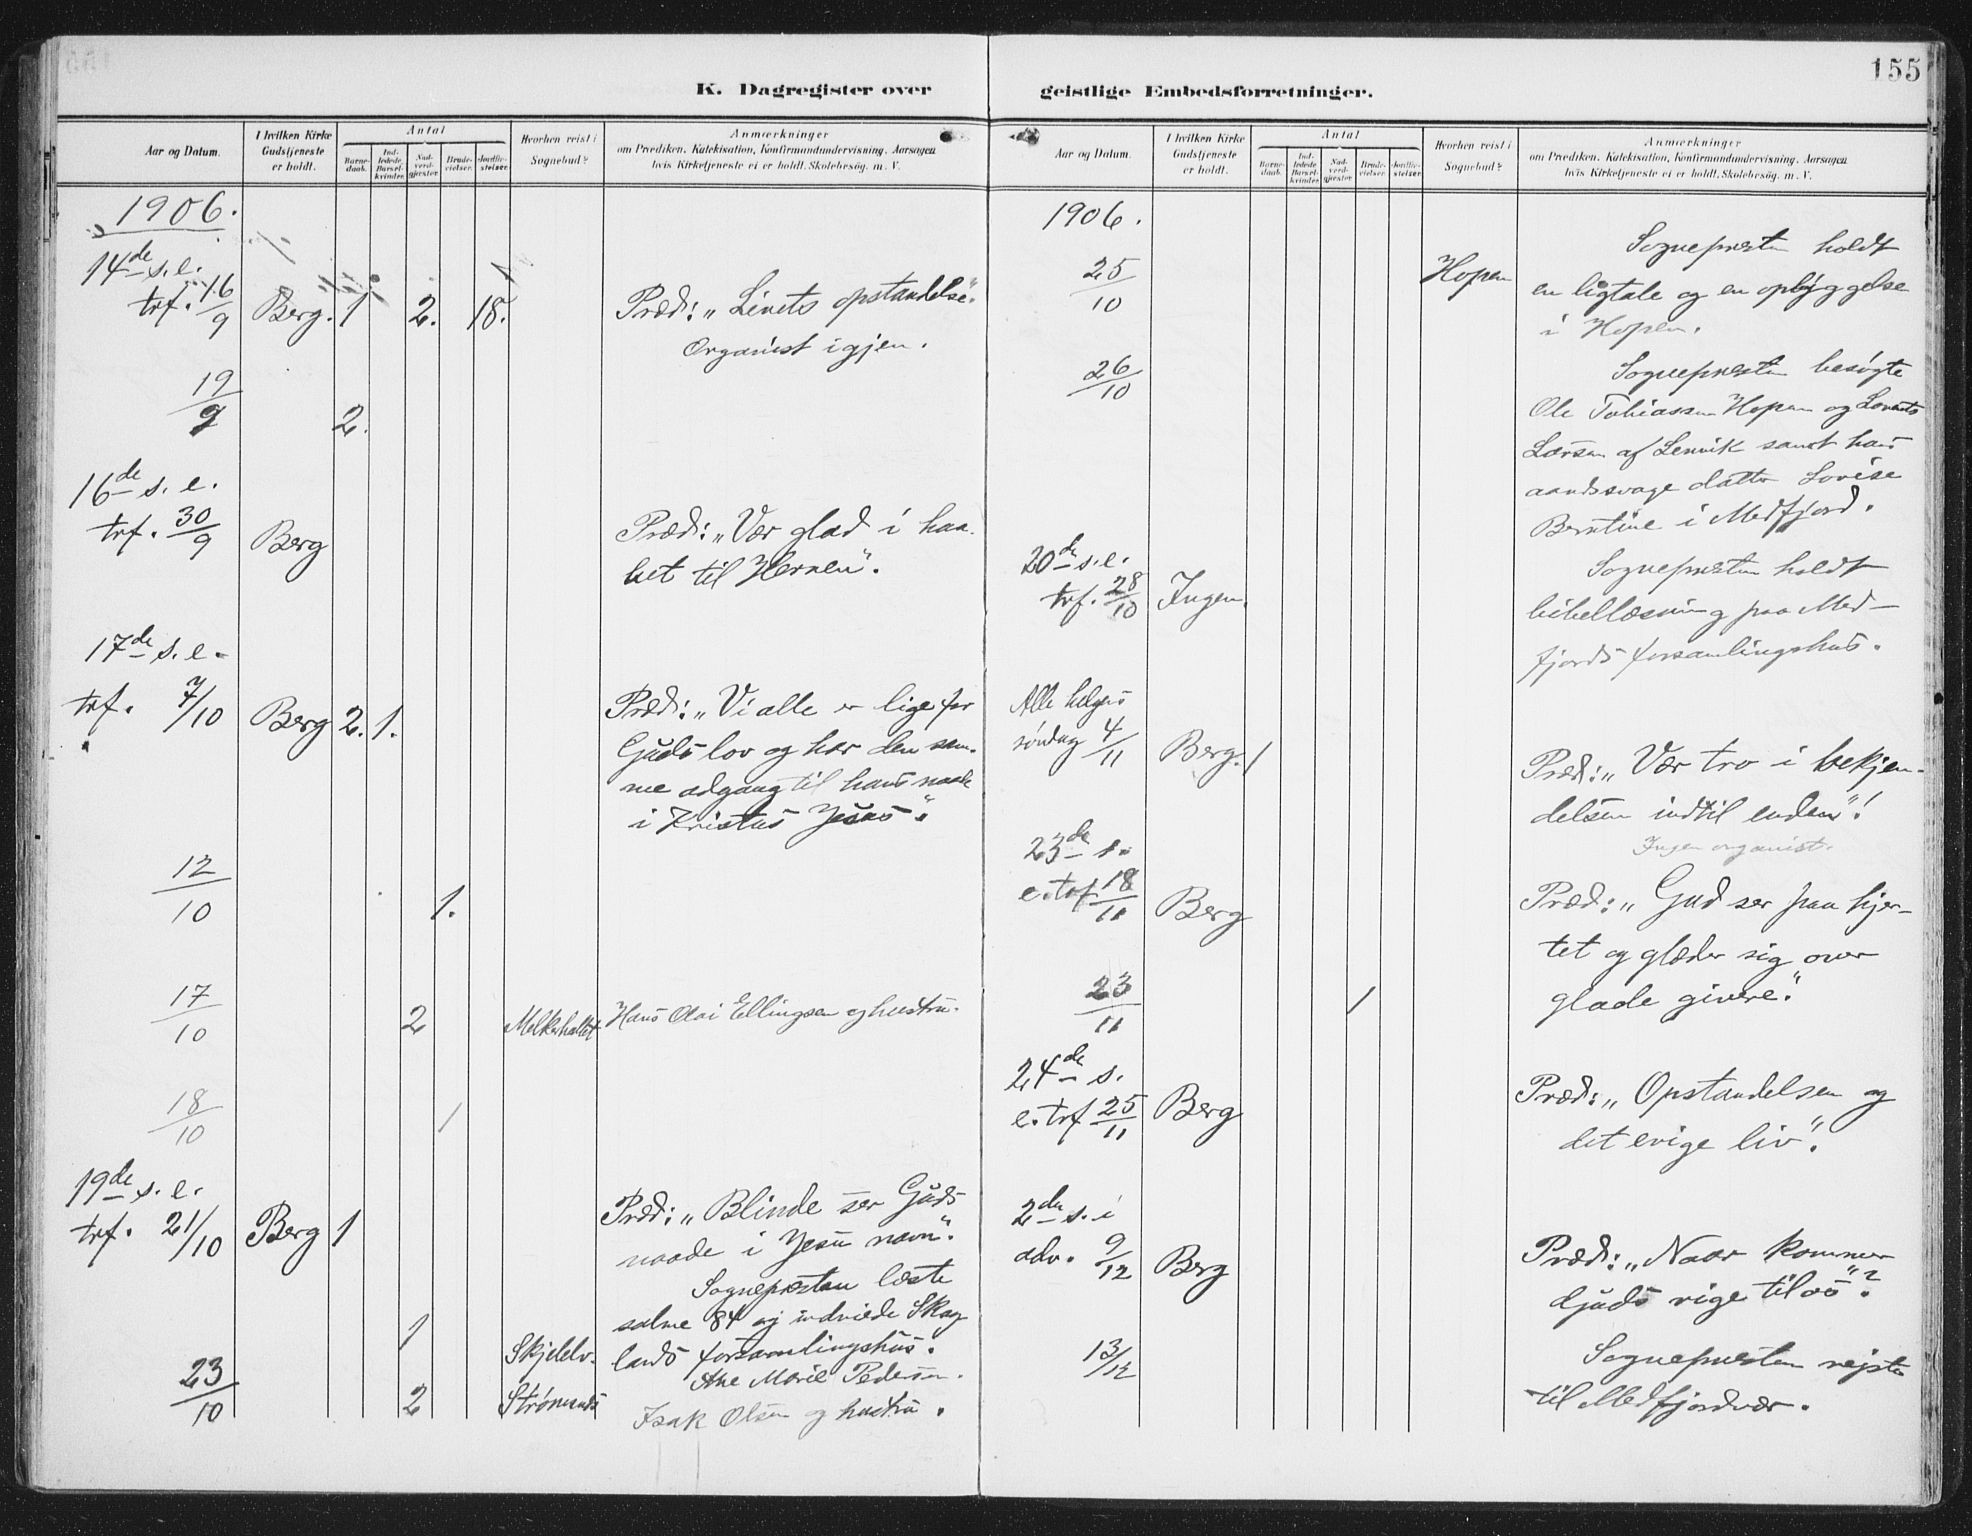 155
K. Dagregister over
geistlige Embedsforretninger.
Aar og Datum.
I hvilken Kirke Gudstjeneste er holdt.
Antal
Barne-daab.
Ind-ledede Barsel-kvinder.
Nad-verd-gjæster.
Brude-vielser.
Jordfæ-stelser.
Hvorhen reist i Sognebud?
Anmærkninger
om Prædiken, Katekisation, Konfirmandundervisning. Aarsagen
hvis Kirketjeneste ei er holdt. Skolebesøg. m. V.
1906.
14de s. e.
trf. 16/9 Berg. 1 2. 18. Præd: „Livets opstandelse".
Organist igjen.
19/9 2.
16de s. e.
trf. 30/9 Berg Præd: „Vær glad i haa-
bet til Herren".
17de s. e.
trf. 7/10 Berg 2. 1. Præd: „Vi alle er lige for
Guds lov og har den sam-
me adgang til hans naade
i Kristus Jesus".
12/10 1.
17/10 2 Hans Olai Ellingsen og hustru.
18/10 1
19de s. e.
trf. 21/10 Berg 1 Præd: „Blinde ser Guds
naade i Jesu navn".
Sognepresten læste
salme 84 og indviede Skag
lands forsamlingshus.
1 Skjelelv. Ane Marie Pedersen.
23/10 2 Strømsnes Isak Olsen og hustru.
Aar og Datum.
I hvilken Kirke Gudstjeneste er holdt.
Antal
Barne-daab.
Ind-ledede Barsel-kvinder.
Nad-verd-gjæster.
Brude-vielser.
Jordfæ-stelser.
Hvorhen reist i Sognebud?
Anmærkninger
om Prædiken, Katekisation, Konfirmandundervisning. Aarsagen
hvis Kirketjeneste ei er holdt. Skolebesøg. m. V.
1906.
25/10 Hopen Sognepresten holdt
en ligtale og en opbyggelse
i Hopen.
26/10 Sognepresten besøgte
Ole Tobiassen Hopen og
Larsen af Lenvik samt hans
aandssvage datter Lovise
Berntine i Medfjord.
20de s. e.
trf. 28/10 Ingen. Sognepresten holdt
bibellæsning paa Med-
fjords forsamlingshus.
Alle helgens
søndag 4/11 Berg. 1 Præd: „Vær tro i bekjen-
delsen indtil enden"!
Ingen organist.
23de s.
e. trf 18/11 Berg Præd: „Gud ser paa hjer-
tet og glæder sig over
glade givere".
23/11 1
24de s.
e. trf 25/11 Berg Præd: „Opstandelsen og
det evige liv".
2den s. i
adv. 9/12 Berg Præd: „Naar kommer
Guds rige til os"?
13/12 Sognepresten rejste
til Medfjordvær.